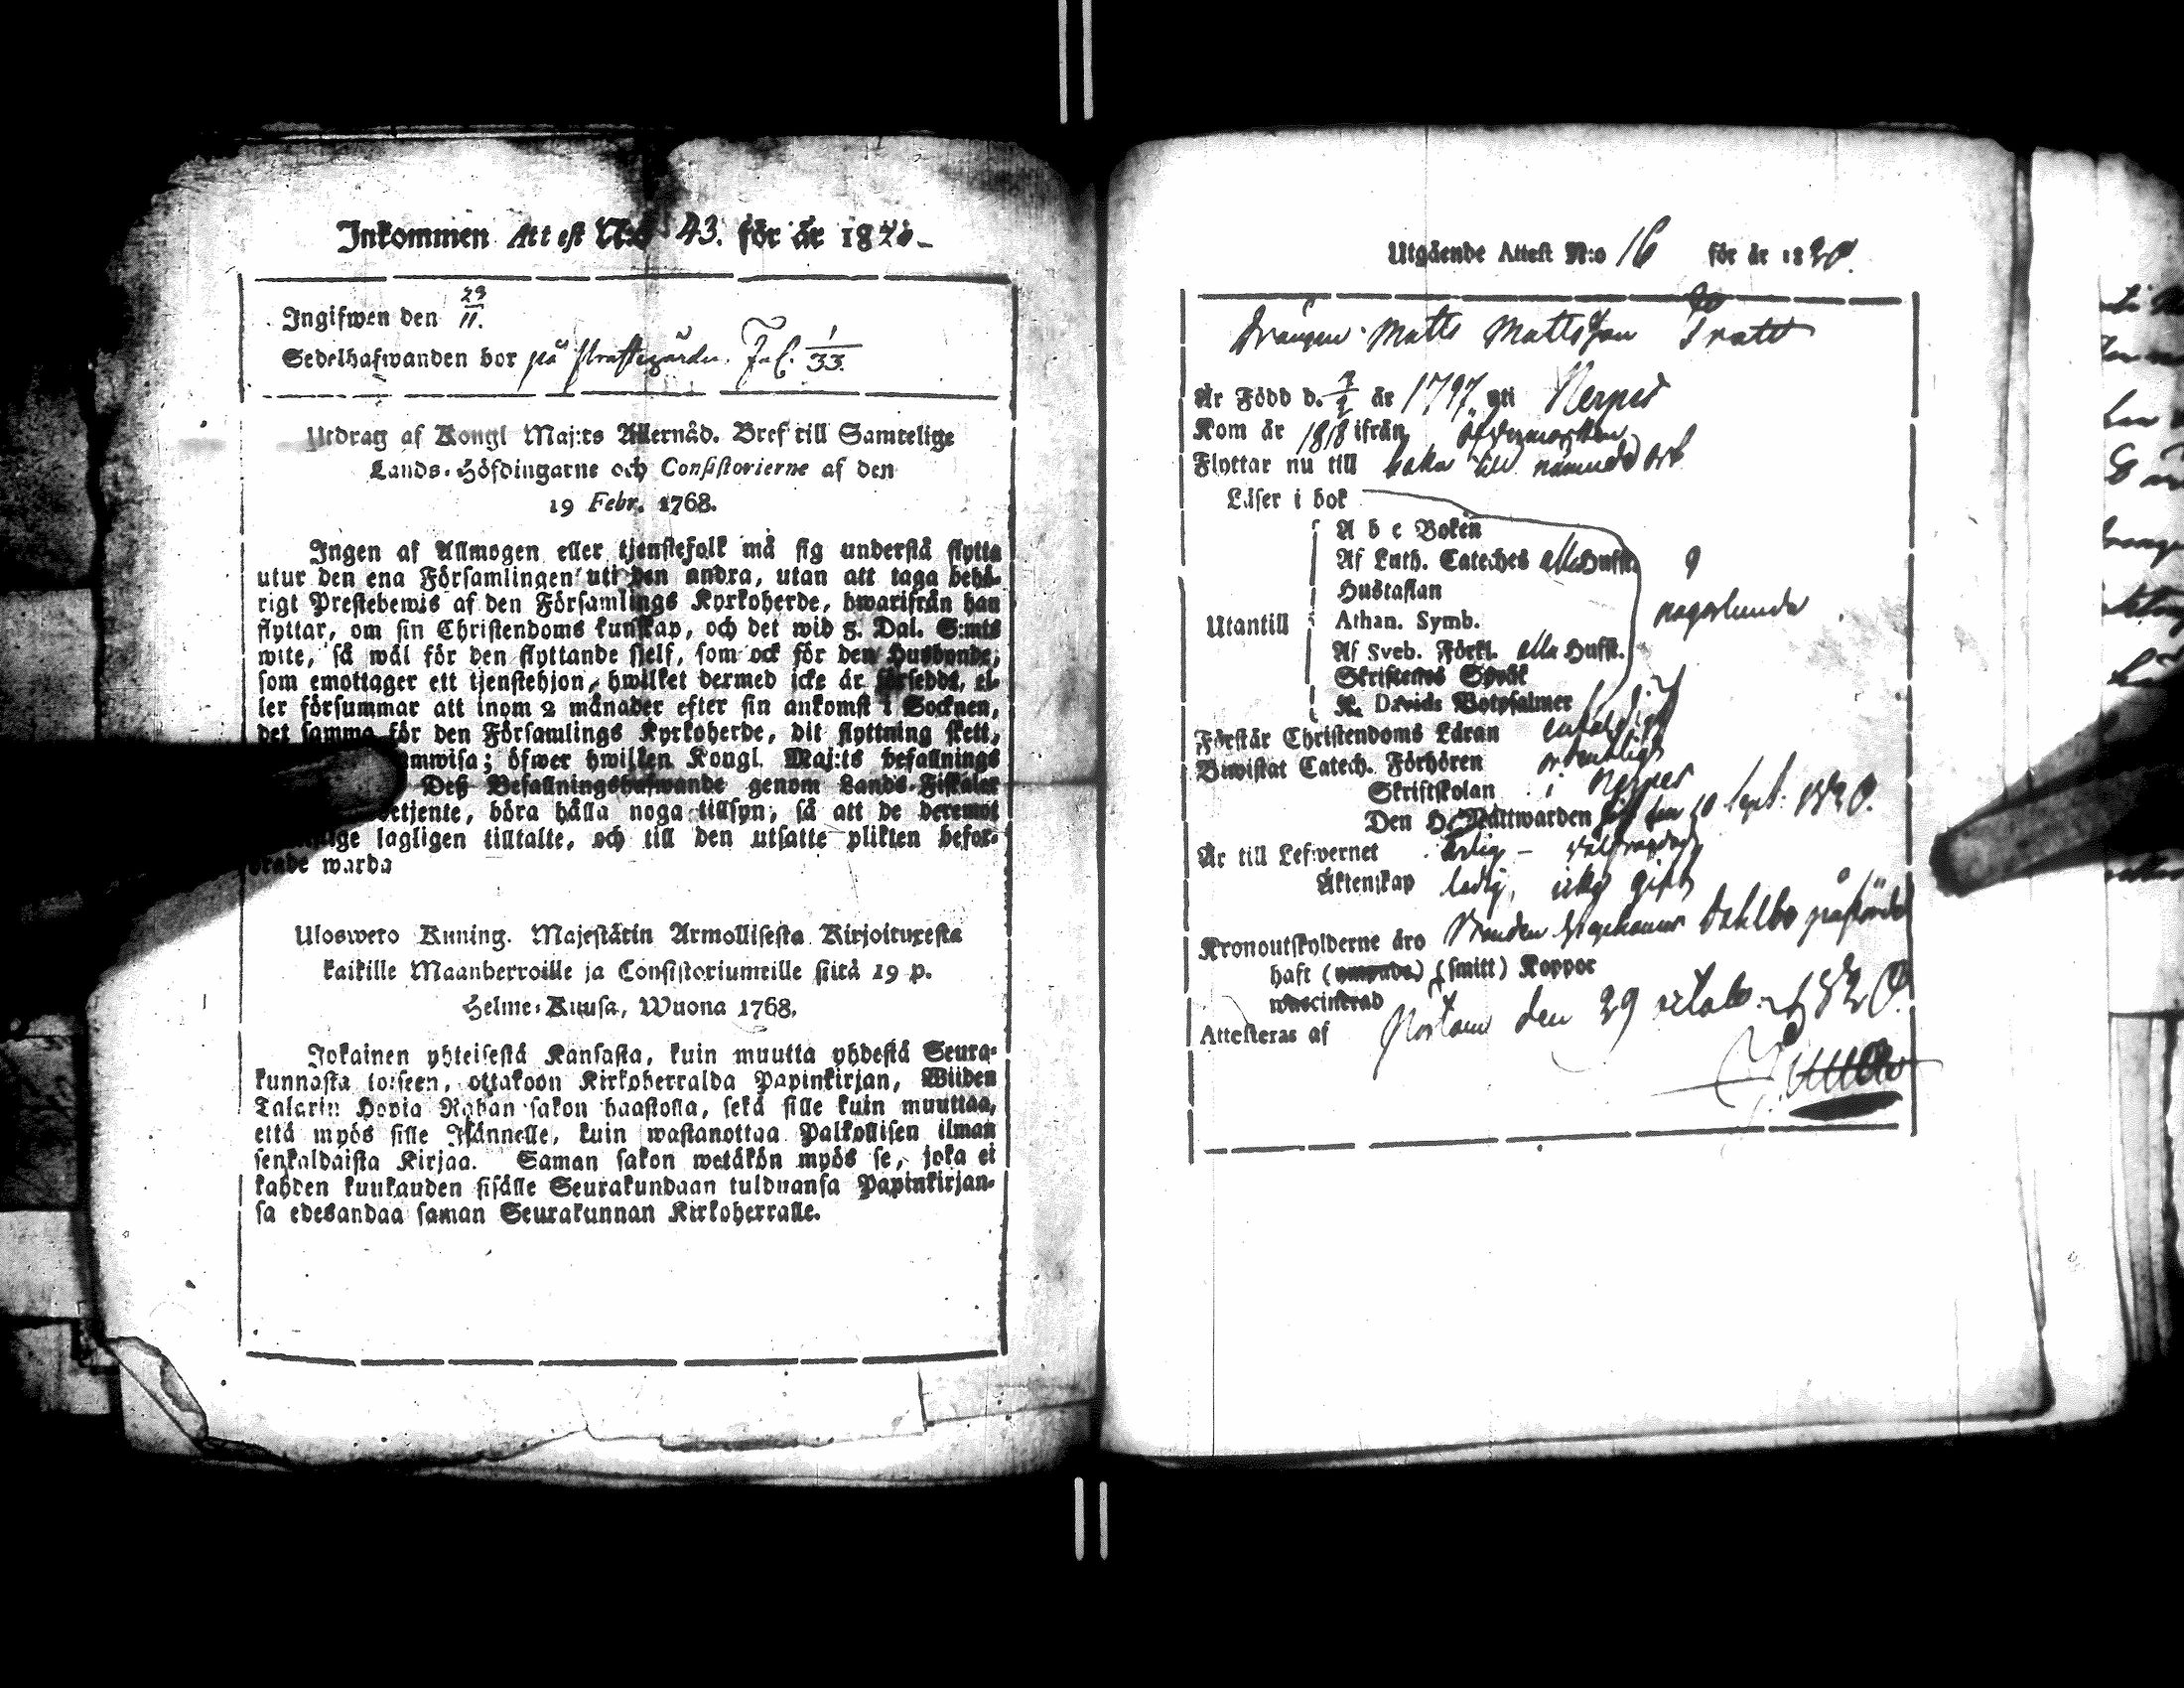 Inkommen Attest N:o 43. för år 1820
Ingifwen den 29/11.
Sedelhafwanden bor på Fol. 1/33.
Utdrag af Kongl Maj:ts Allernåd. Bref till Samtelige
Lands-Höfdingarne och Consistorierne af den
19 Febr. 1768.
Ingen af Allmogen eller tjenstefolk må sig understå flytta
utur den ena Församlingen uti den andra, utan att taga behö-
rigt Prestebewis af den Församlings Kyrkoherde, hwarifrån han
flyttar, om sin Christendoms kunskap, och det wid 5. Dal. S:mts
wite, så wäl för den flyttande sjelf, som ock för den Husbonde,
som emottager ett tjenstehjon, hwilket dermed icke är försedt, el-
ler försummar att inom 2 månader efter sin ankomst i Socknen,
det samma för den Församlings Kyrkoherde, dit flyttning skett,
mwisa; öfwer hwilken Kongl. Maj:ts befallnings
Deß Befallningshafwande genom Lands-Fiskaler
etjente, böra hålla noga tillsyn, så att de deremot
lige lagligen tilltalte, och till den utsatte plikten befor-
drade warda
Uloswero Kuning. Majestätin Armollisesta Kirjoituxesta
kaikille Maanherroille ja Consistoriumeille siitä 19 p.
Helme-Kuusa, Wuona 1768.
Jokainen yhteisestä Kansasta, kuin muutta yhdestä Seura-
kunnasta toiseen, ottakoon Kirkoherralda Papinkirjan, Wiiden
Talarin Hopia Rahan sakon haastolla, sekä sille kuin muuttaa,
että myös sille Isännelle, kuin wastanottaa Palkollisen ilman
senkaldaista Kirjaa. Saman sakon wetäkön myös se, joka ei
kahden kuukauden sisälle Seurakundaan tulduansa Papinkirjan-
sa edesandaa saman Seurakunnan Kirkoherralle.
Utgående Attest N:o 16 för år 1820.
Drängen Matts Mattsson
Är Född d. år 1797 uti Nerpes
Kom år 1818 ifrån Öfvermarken
Flyttar nu till baka till nämnde ort
Läser i bok
A b c Boken
Af Luth. Cateches alla Hufst.
Hustaflan
Utantill Athan. Symb. någorlunda
Af Sveb. Förkl. alla Hufst.
Skriftenes Språk
K. Davids Botpsalmer
Förstår Christendoms Läran enfaldigt
Biwistat Catech. Förhören ordentligt
Skriftskolan i Nerpes
Den H. Nattwarden den 10 Sept. 1820.
Är till Lefwernet ärlig - välfrägdad
Äktenskap ledig, icke gift
Kronoutskylderne äro Bonden Dahlbo påförde
haft (smitt) Koppor
waccinerad
Attesteras af Pörtom den 29 october 1820.